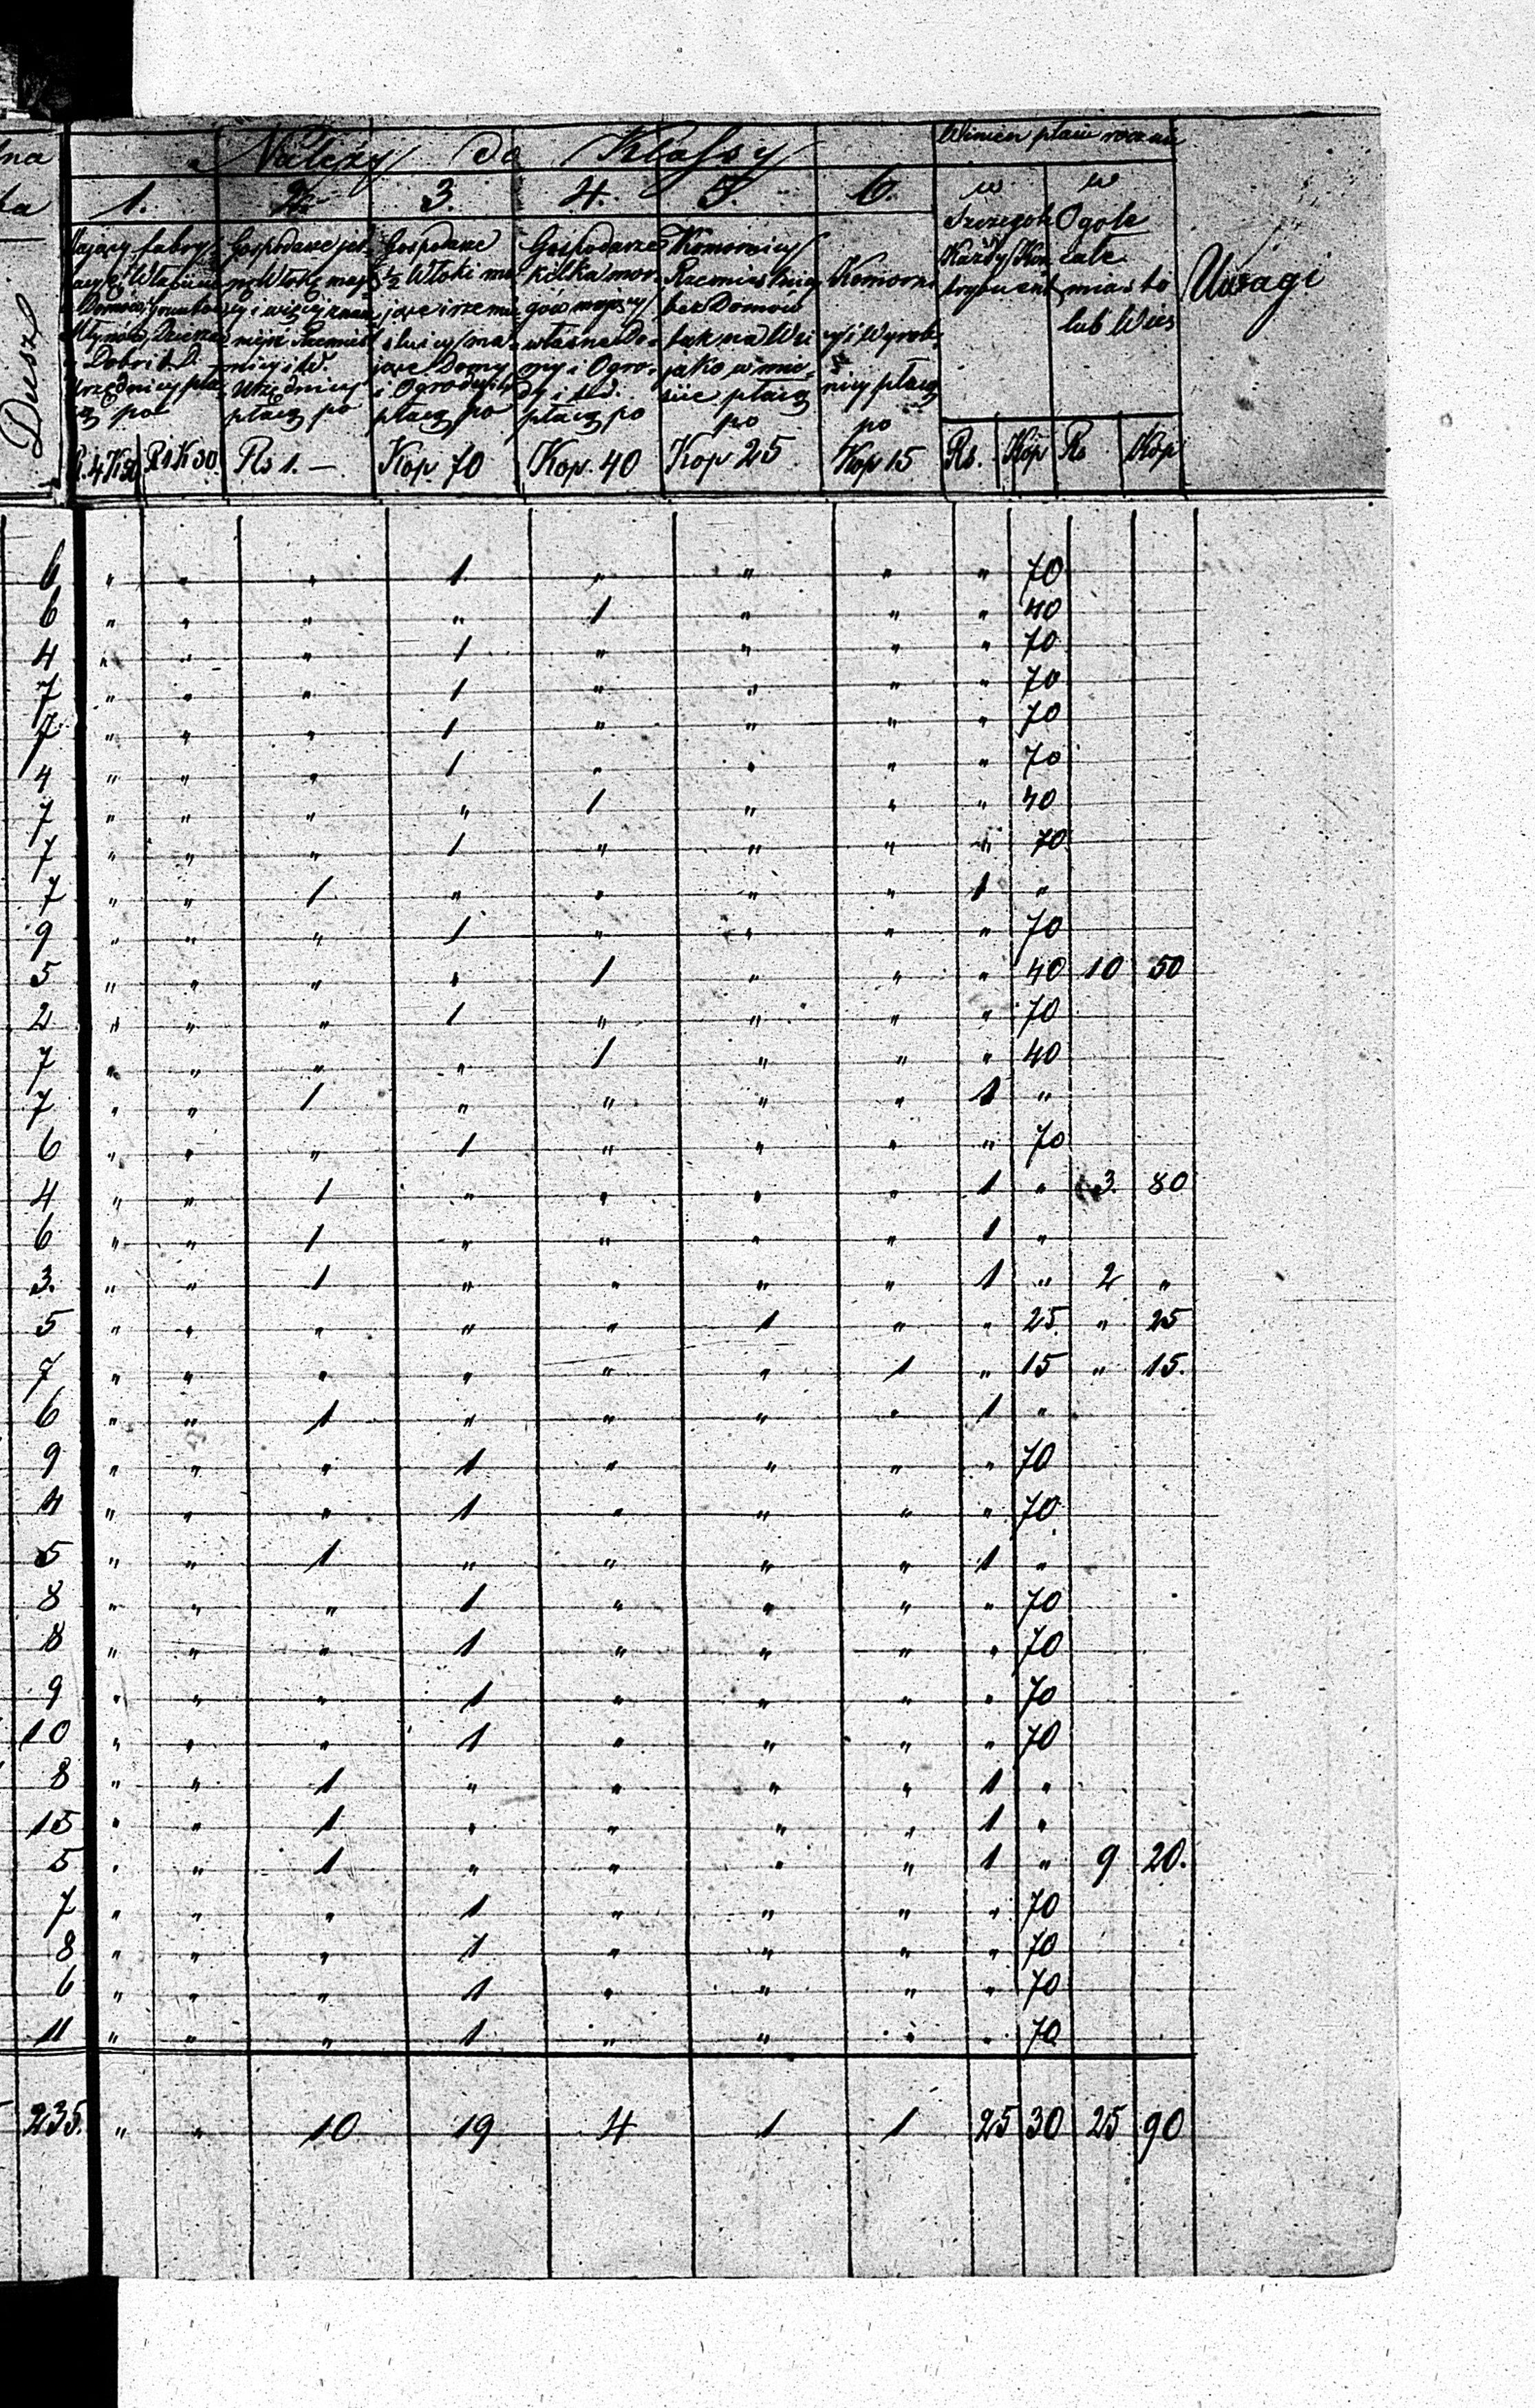 Należy do Klassy
Winien płacić rocznie
1. 2. 3. 4. 5. 6.
w Szczególe Każdy Kontrybuent
w Ogóle całe miasto lub Wieś
Uwagi
Dusz
Gospodarze
½ Włoki
płacą po
Gospodarze
kilka mor-
gów mający
własne Do-
my i Ogro-
dy i t.d.
płacą po
Komornicy
Rzemieślnicy
bez Domów
tak na Wsi
jako w mie-
ście płacą
po
Komorni-
cy i Wyrob-
nicy płacą
po
R. 4 K 50 R 1 K 50 Rs 1. — Kop. 70 Kop. 40 Kop 25 Kop 15 Rs. Kop Rs Kop
6 " " " 1 " " " " 70
6 " " " " 1 " " " 40
4 " " " 1 " " " " 70
7 " " " 1 " " " " 70
7 " " " 1 " " " " 70
4 " " " 1 " " " " 70
7 " " " " 1 " " " 40
7 " " " 1 " " " " 70
7 " " 1 " " " " 1 "
9 " " " 1 " " " " 70
5 " " " " 1 " " " 40 10 50
2 " " " 1 " " " " 70
7 " " " " 1 " " " 40
7 " " 1 " " " " 1 "
6 " " " 1 " " " " 70
4 " " 1 " " " " 1 " 3. 80
6 " " 1 " " " " 1 "
3. " " 1 " " " " 1 " 2 "
5 " " " " " 1 " " 25 " 25
7 " " " " " " 1 " 15 " 15.
6 " " 1 " " " " 1 "
9 " " " 1 " " " " 70
4 " " " 1 " " " " 70
5 " " 1 " " " " 1 "
8 " " " 1 " " " " 70
8 " " " 1 " " " " 70
9 " " " 1 " " " " 70
10 " " " 1 " " " " 70
8 " " 1 " " " " 1 "
15 " " 1 " " " " 1 "
5 " " 1 " " " " 1 " 9 20.
7 " " " 1 " " " " 70
8 " " " 1 " " " " 70
6 " " " 1 " " " " 70
11 " " " 1 " " " " 70
235. " " 10 19 4 1 1 25 30 25 90